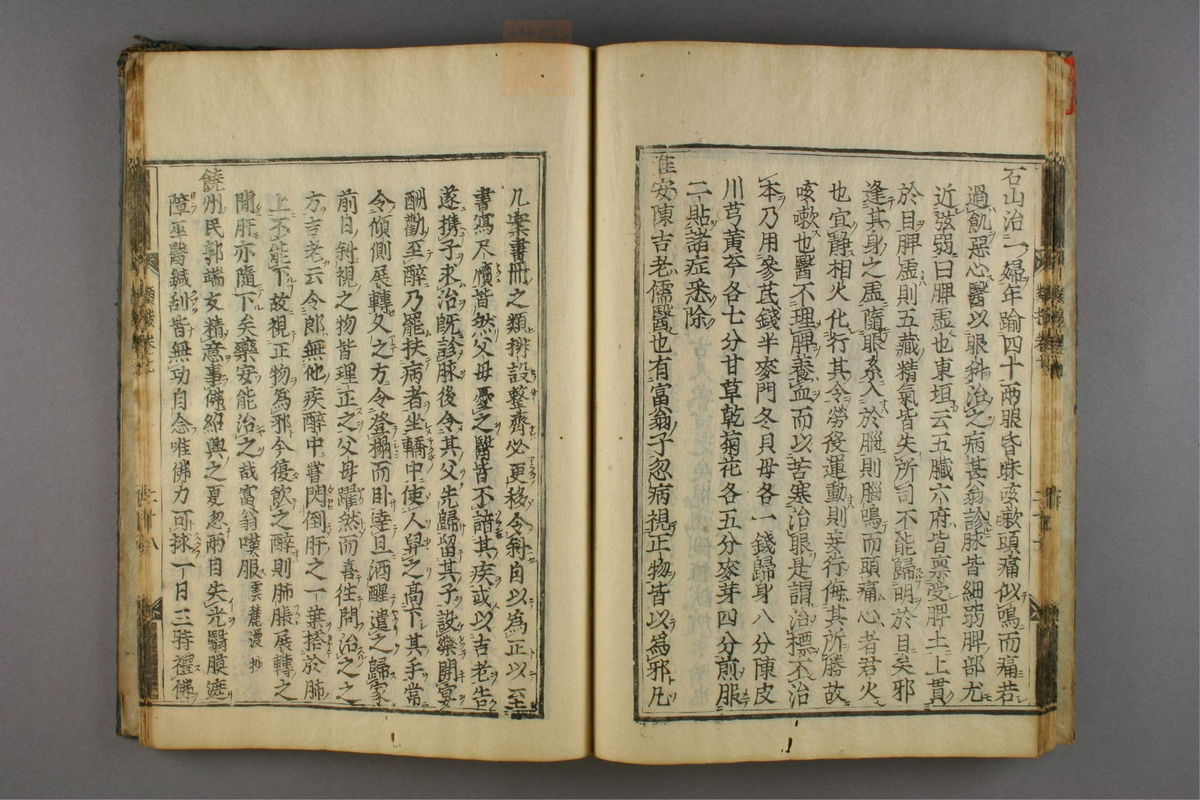 石山治一婦年踰四十兩眼昏昧咳嗽頭痛似鳴而痛若
過飢惡心醫以眼科治之病甚翁診脉皆細弱脾部尤
近弦弱曰脾虛也東垣云五臟六府皆稟受脾土上貫
於目脾虛則五藏精氣皆失所司不能歸明於目矣邪
逢其身之虛隨眼系入於腦則腦鳴而頭痛心者君火
也宜靜相火化行其令勞役運動則妄行侮其所勝故
咳嗽也醫不理脾養血而以苦寒治眼是謂治標不治
本乃用參芪錢半麥門冬貝母各一錢歸身八分陳皮
川芎黄芩各七分甘草乾菊花各五分麥芽四分煎服
二貼諸症悉除
淮安陳吉老儒醫也有富翁子忽病視正物皆以爲邪凡
几案書冊之類排設整齊必更移令斜自以爲正以至
書寫尺牘皆然父母憂之醫皆不諳其疾或以吉老告
遂携子求治既診脉後令其父先歸留其子設樂開宴
酬勸至醉乃罷扶病者坐轎中使人舁之高下其手常
令傾側展轉久之方令登榻而臥達旦酒醒遣之歸家
前日斜視之物皆理正之父母躍然而喜往問治之之
方吉老云令郎無他疾醉中嘗閃倒肝之一葉搭於肺
上不能下故視正物爲邪今復飮之醉則肺脹展轉之
間肝亦隨下矣藥安能治之哉富翁嘆服 雲麓漫抄
饒州民郭端友精意事佛紹興之夏忽兩目失光翳膜遮
障巫醫鍼刮皆無功自念唯佛力可捄一日三時禮佛